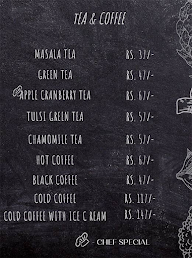 TEA & COFFEE
MASALA TEA RS. 37/-
GREEN TEA RS. 47/-
APPLE CRANBERRY TEA RS. 67/-
TULSI GREEN TEA RS. 57/-
CHAMOMILE TEA RS. 57/-
HOT COFFEE RS. 67/-
BLACK COFFEE RS. 47/-
COLD COFFEE RS. 117/-
COLD COFFEE WITH ICE C REAM RS. 147/-
- CHEF SPECIAL